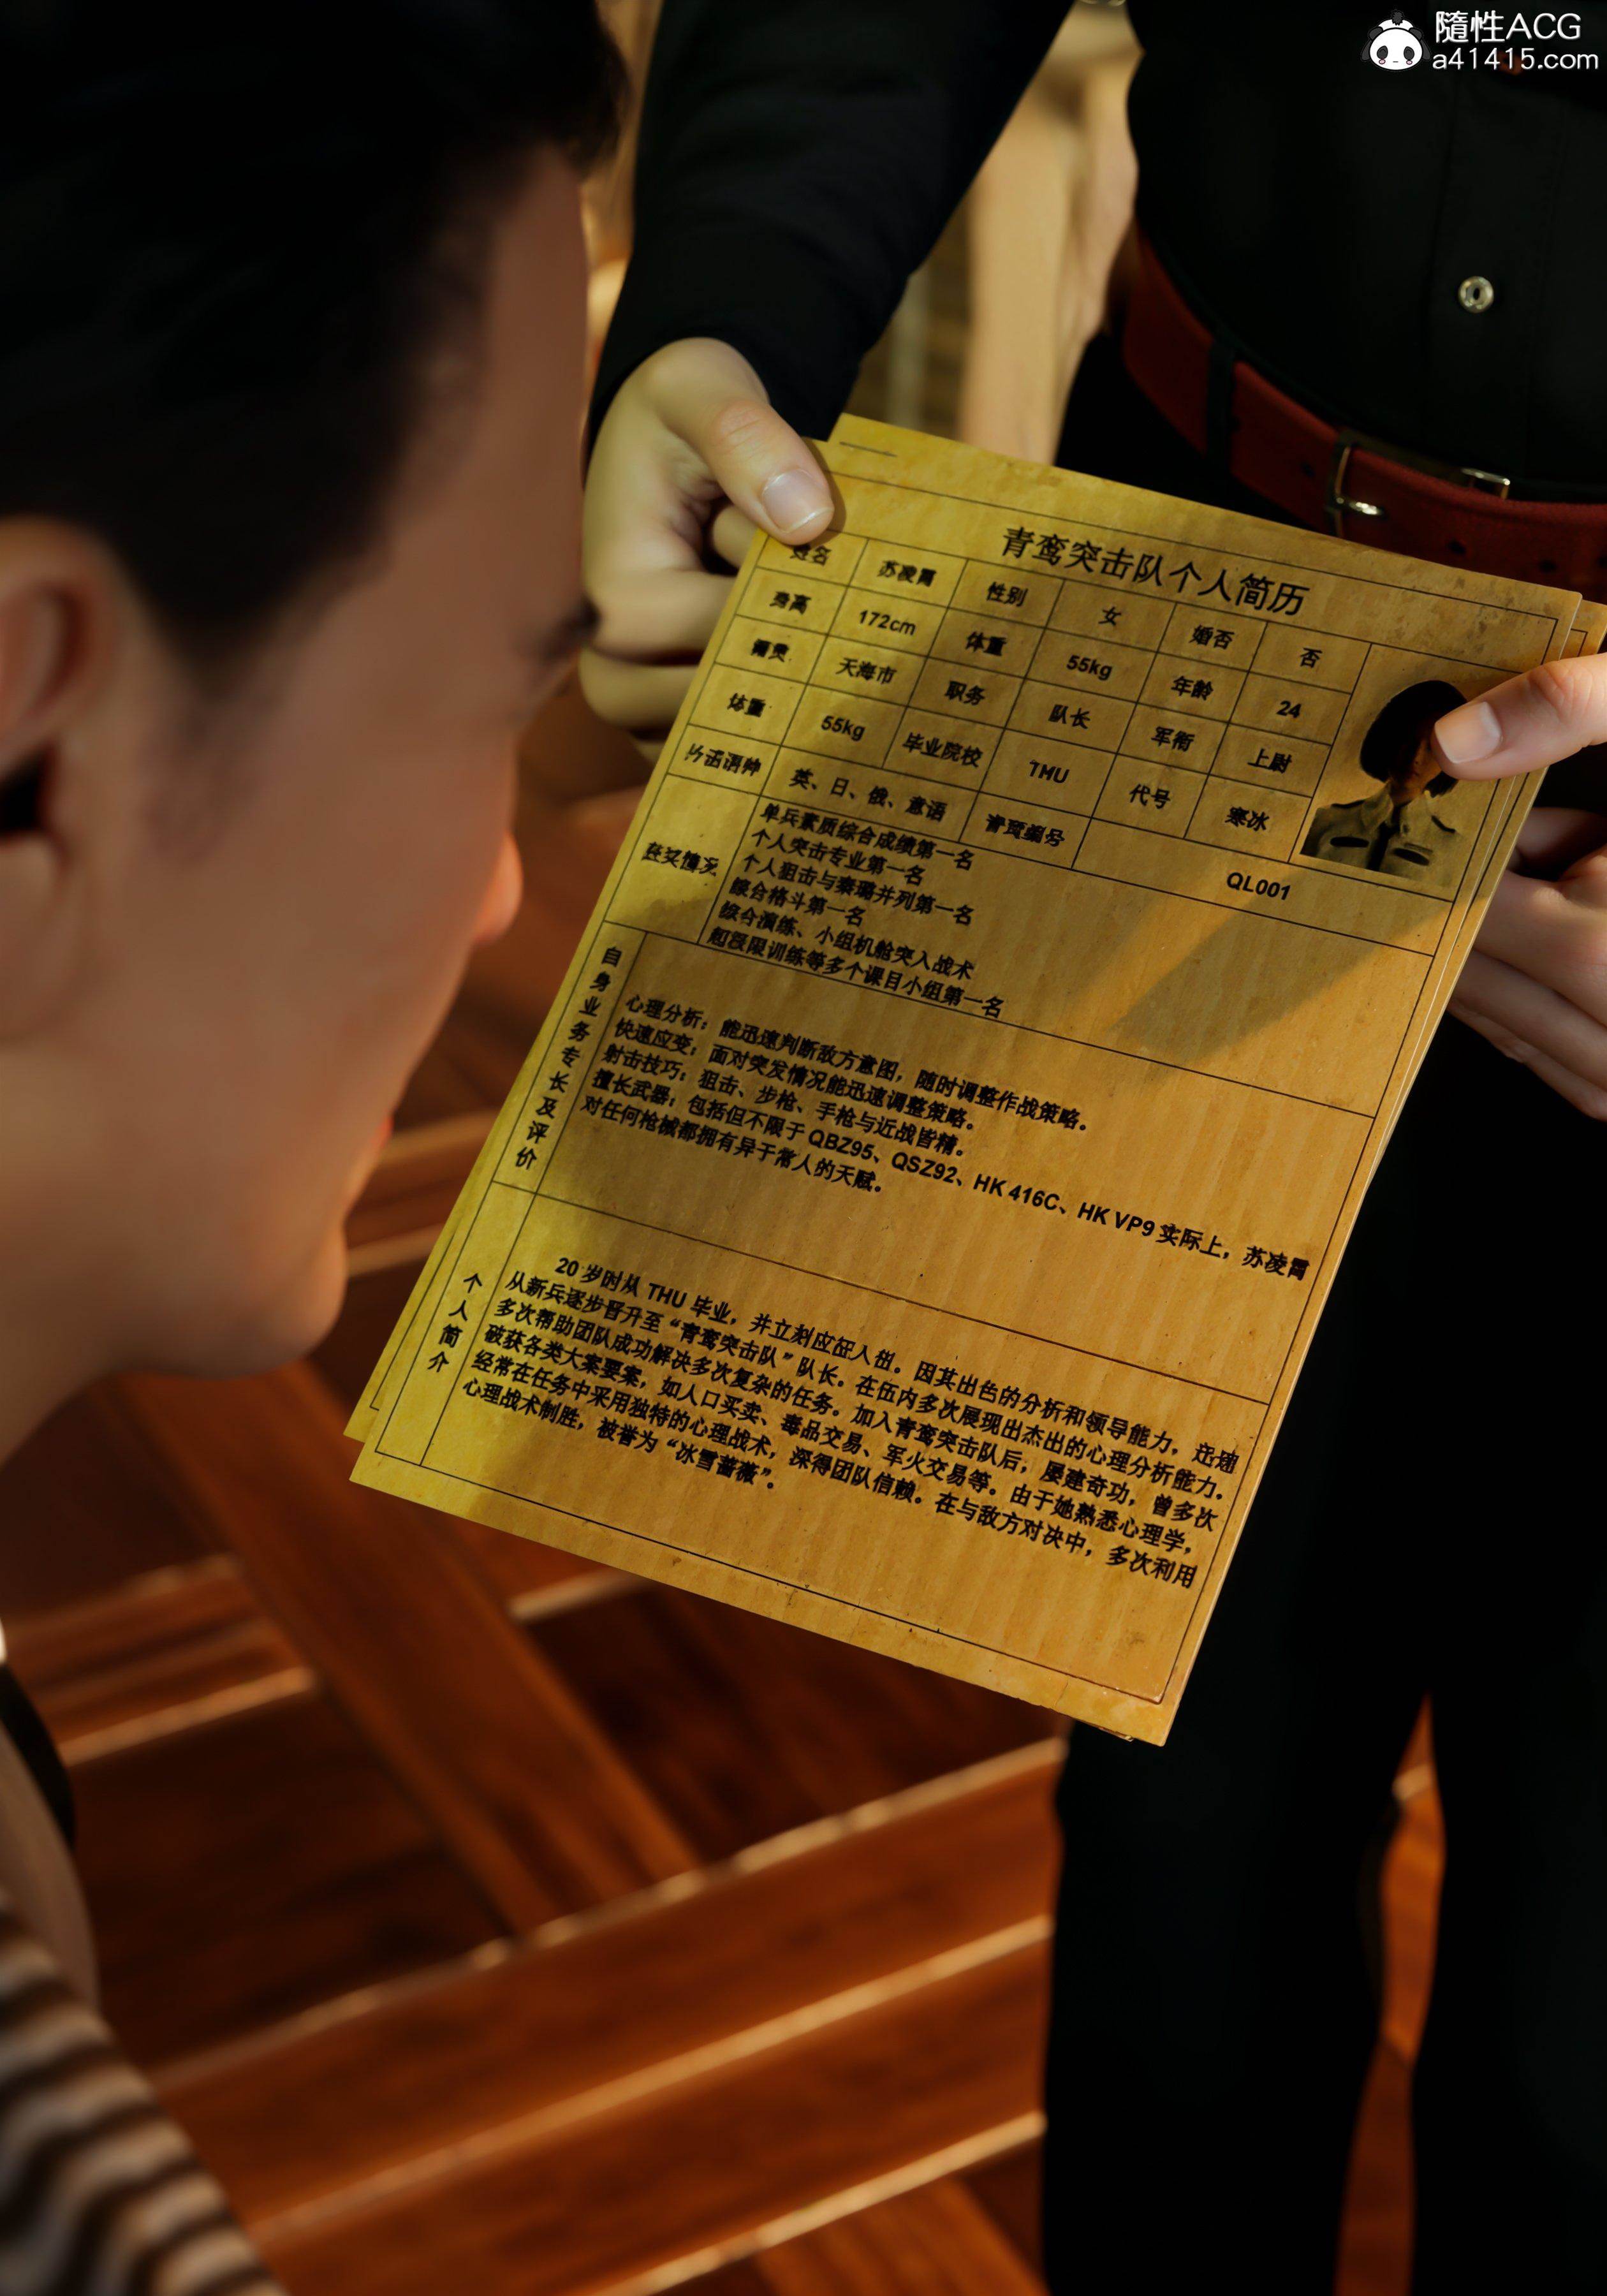 隨性ACG
a41415.com
青鸾突击队个人简历
姓名 苏凌霄 性别 女 婚否 否
身高 172cm 体重 55kg 年龄 24
籍贯 天海市 职务 队长 军衔 上尉
体重 55kg 毕业院校 THU 代号 寒冰
英、日、俄、意语 QL001
单兵素质综合成绩第一名
个人突击专业第一名
个人狙击与秦璐并列第一名
综合格斗第一名
综合演练、小组机舱突入战术
超极限训练等多个课目小组第一名
自身业务专长及评价
心理分析：能迅速判断敌方意图，随时调整作战策略。
快速应变：面对突发情况能迅速调整策略。
射击技巧：狙击、步枪、手枪与近战皆精。
擅长武器：包括但不限于 QBZ95、QSZ92、HK 416C、HK VP9 实际上，苏凌霄
对任何枪械都拥有异于常人的天赋。
个人简介
20 岁时从 THU 毕业，并立刻应征入伍。因其出色的分析和领导能力，迅速
从新兵逐步晋升至“青鸾突击队”队长。在伍内多次展现出杰出的心理分析能力。
多次帮助团队成功解决多次复杂的任务。加入青鸾突击队后，屡建奇功，曾多次
破获各类大案要案，如人口买卖、毒品交易、军火交易等。由于她熟悉心理学，
经常在任务中采用独特的心理战术，深得团队信赖。在与敌方对决中，多次利用
心理战术制胜，被誉为“冰雪蔷薇”。